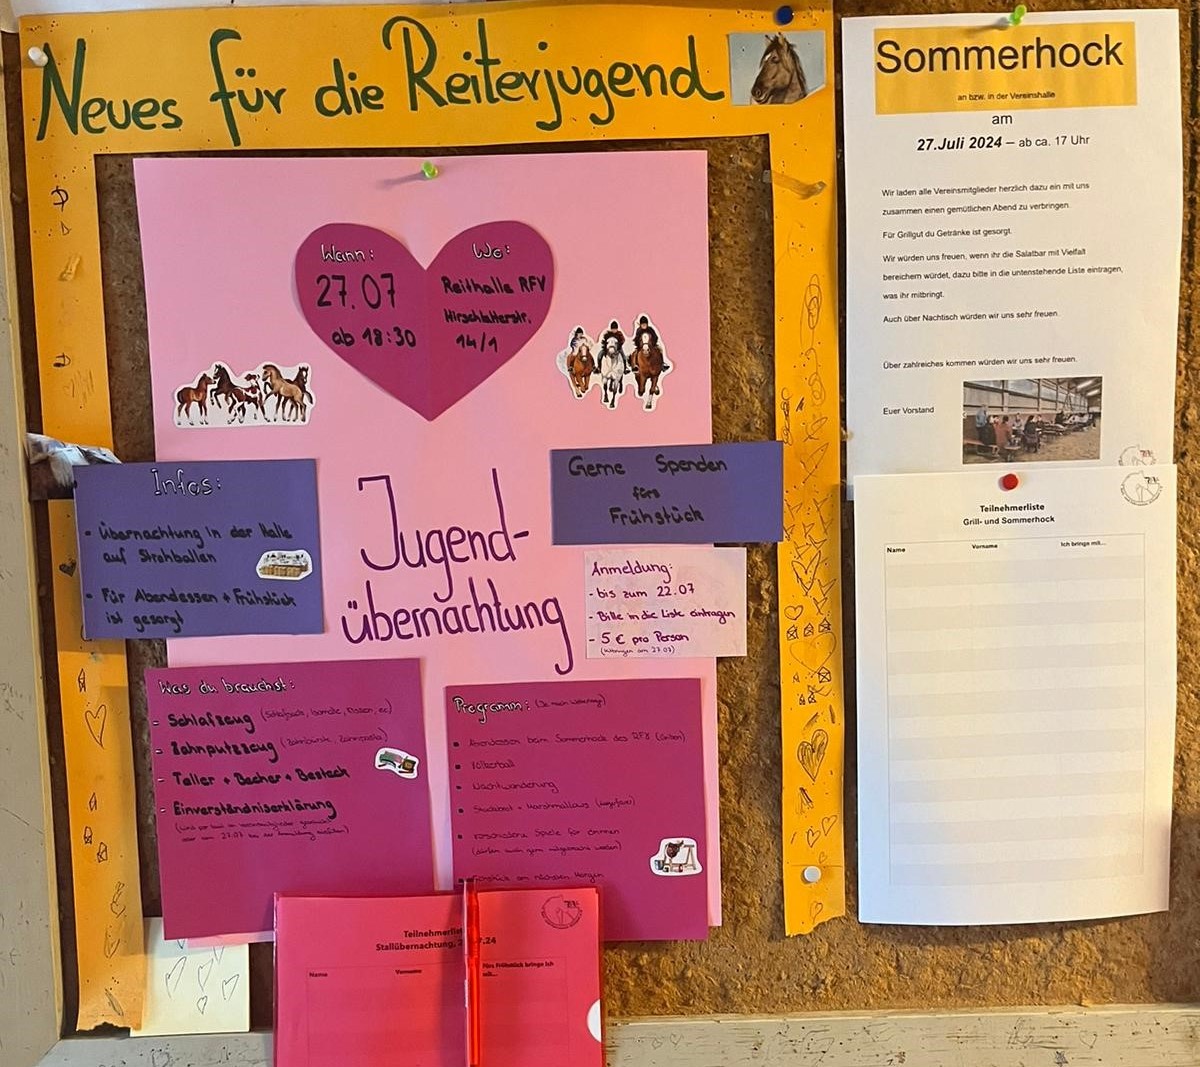 Neues für die Reiterjugend
Wann:
27.07
ab 18:30
Wo:
Reithalle RFV
Hirschlatterstr.
14/1
Infos:
- Übernachtung in der Halle
auf Strohballen
- Für Abendessen + Frühstück
ist gesorgt
Jugend-
übernachtung
Gerne Spenden
fürs
Frühstück
Anmeldung:
- bis zum 22.07
- Bitte in die Liste eintragen
- 5 € pro Person
(Mitbringen am 27.07)
Was du brauchst:
- Schlafzeug (Schlafsack, Isomatte, Kissen, ec)
- Zahnputzzeug (Zahnbürste, Zahnpasta)
- Teller + Becher + Besteck
- Einverständniserklärung
Programm: (Je nach Wetterlage)
Abendessen beim Sommerhock des RFV (Grillen)
Völkerball
Nachtwanderung
Stockbrot + Marshmallows (Lagerfeuer)
verschiedene Spiele für drinnen
(dürfen auch gern mitgebracht werden)
Frühstück am nächsten Morgen
Teilnehmerliste
Stallübernachtung, 2 .24
Name Vorname Fürs Frühstück bringe ich
mit...
Sommerhock
an bzw. in der Vereinshalle
am
27.Juli 2024 – ab ca. 17 Uhr
Wir laden alle Vereinsmitglieder herzlich dazu ein mit uns
zusammen einen gemütlichen Abend zu verbringen.
Für Grillgut du Getränke ist gesorgt.
Wir würden uns freuen, wenn ihr die Salatbar mit Vielfalt
bereichern würdet, dazu bitte in die untenstehende Liste eintragen,
was ihr mitbringt.
Auch über Nachtisch würden wir uns sehr freuen.
Über zahlreiches kommen würden wir uns sehr freuen.
Euer Vorstand
Teilnehmerliste
Grill- und Sommerhock
Name Vorname Ich bringe mit...